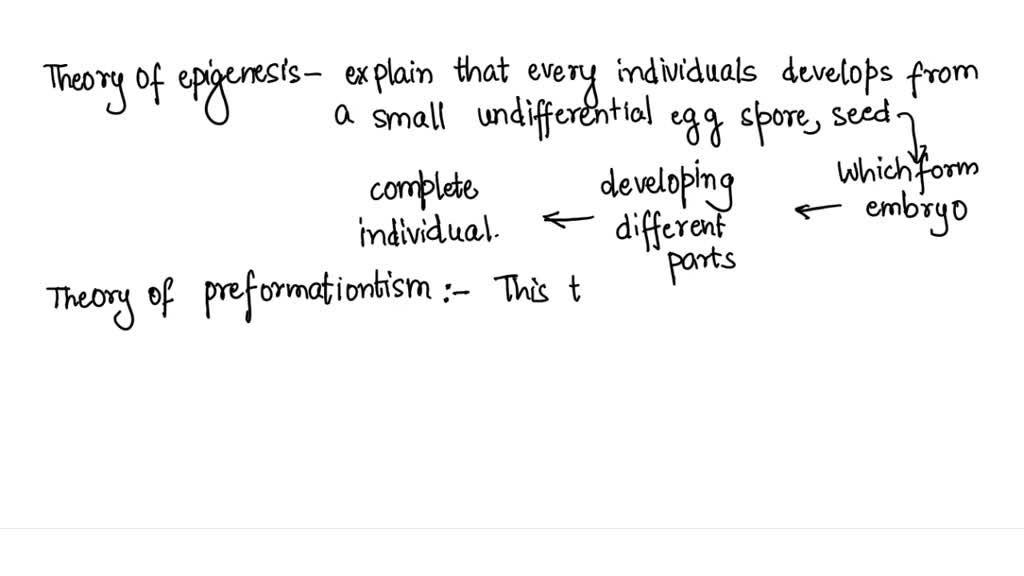 Theory of epigenesis - explain that every individuals develops from
a small undifferential egg spore, seed
which form
embryo
developing
different
parts
complete
individual.
Theory of preformationtism :- This t